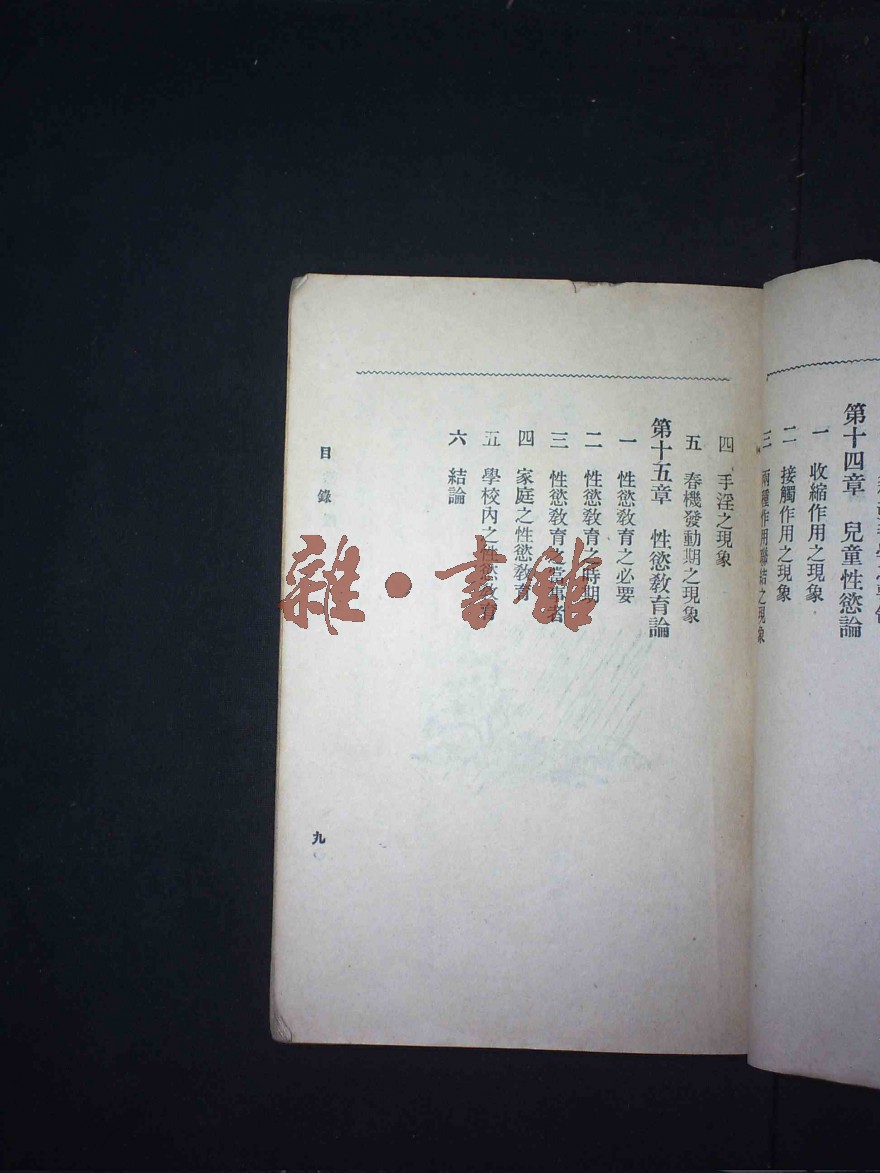 第十四章 兒童性慾論
一 收縮作用之現象
二 接觸作用之現象
三 兩種作用聯結之現象
四 手淫之現象
五 春機發動期之現象
第十五章 性慾敎育論
一 性慾敎育之必要
二 性慾敎育之時期
三 性慾敎育之當事者
四 家庭之性慾敎育
五 學校內之性慾敎育
六 結論
目錄
九
雜·書館